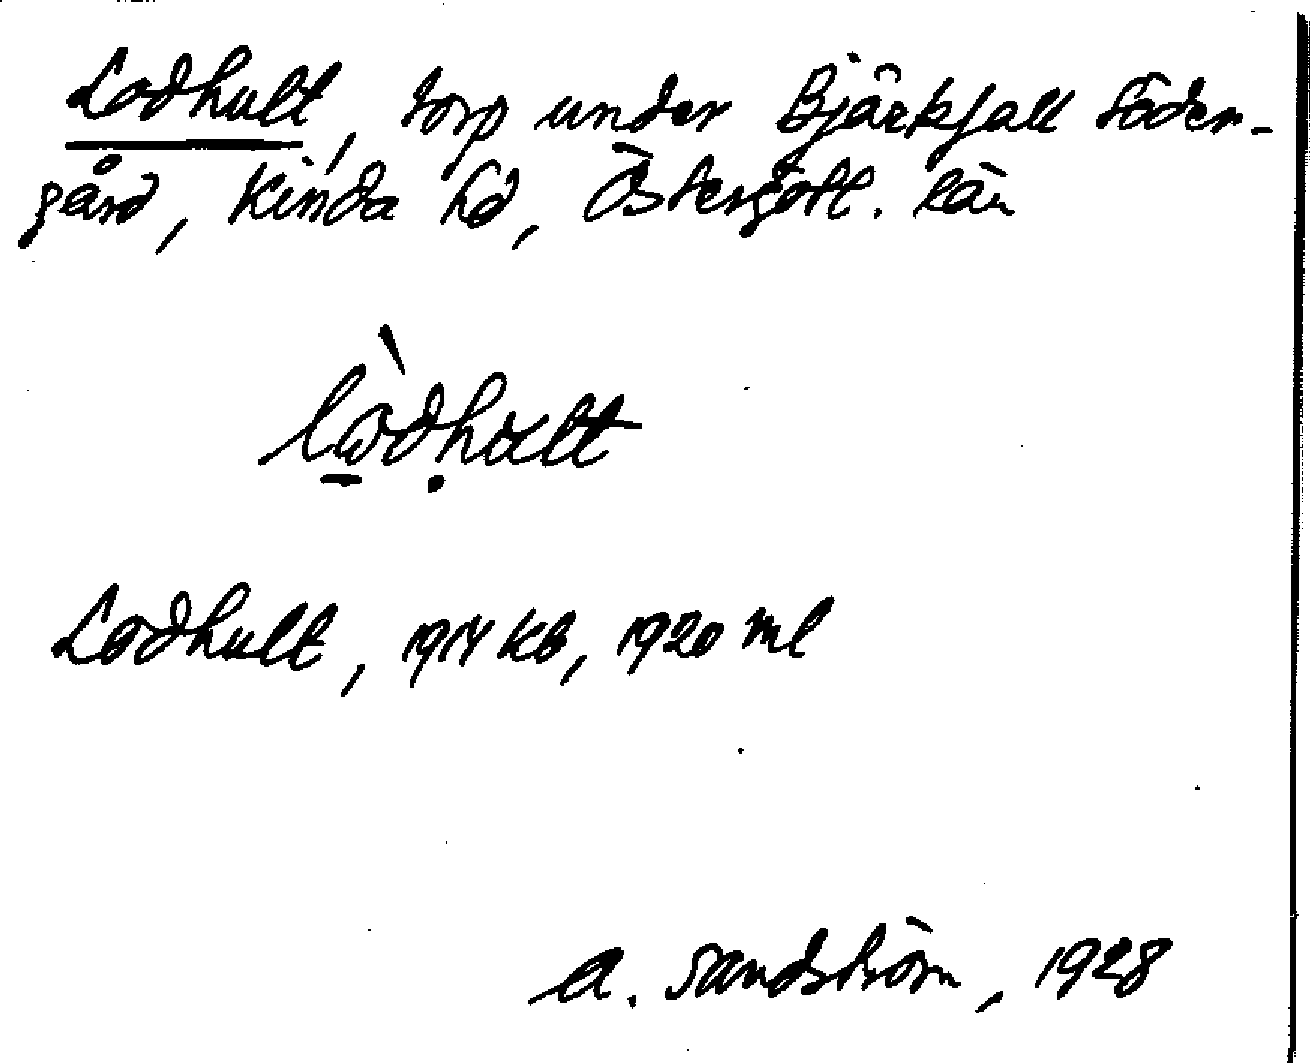 Lodhult, torp under Bjärkfall Söder-
gård, Kinda hd, Östergötl. län
lòdhult
Lodhult, 1914 Kb, 1920 ml
A. Sandström, 1928